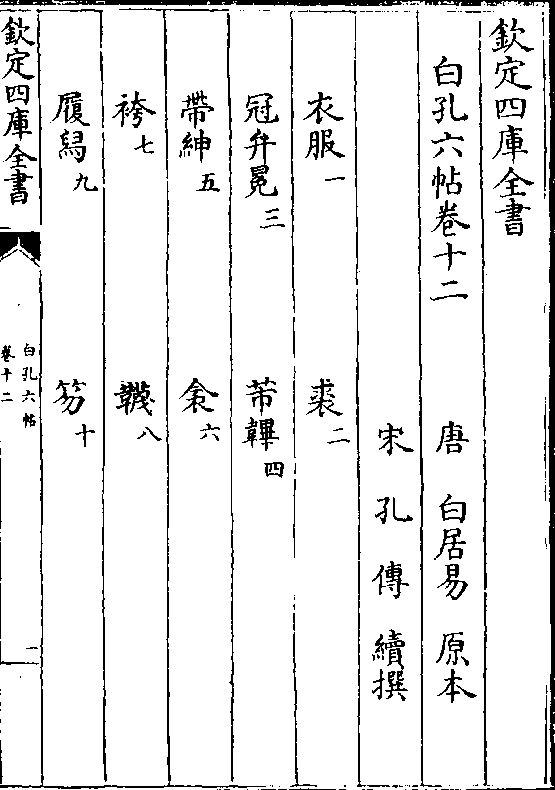 欽定四庫全書
白孔六帖卷十二
唐 白居易 原本
宋 孔傳 續撰
衣服一 裘二
冠弁冕三 芾韠四
帶紳五 衾六
袴七 韈八
履舄九 笏十
欽定四庫全書
白孔六帖
卷十二
一